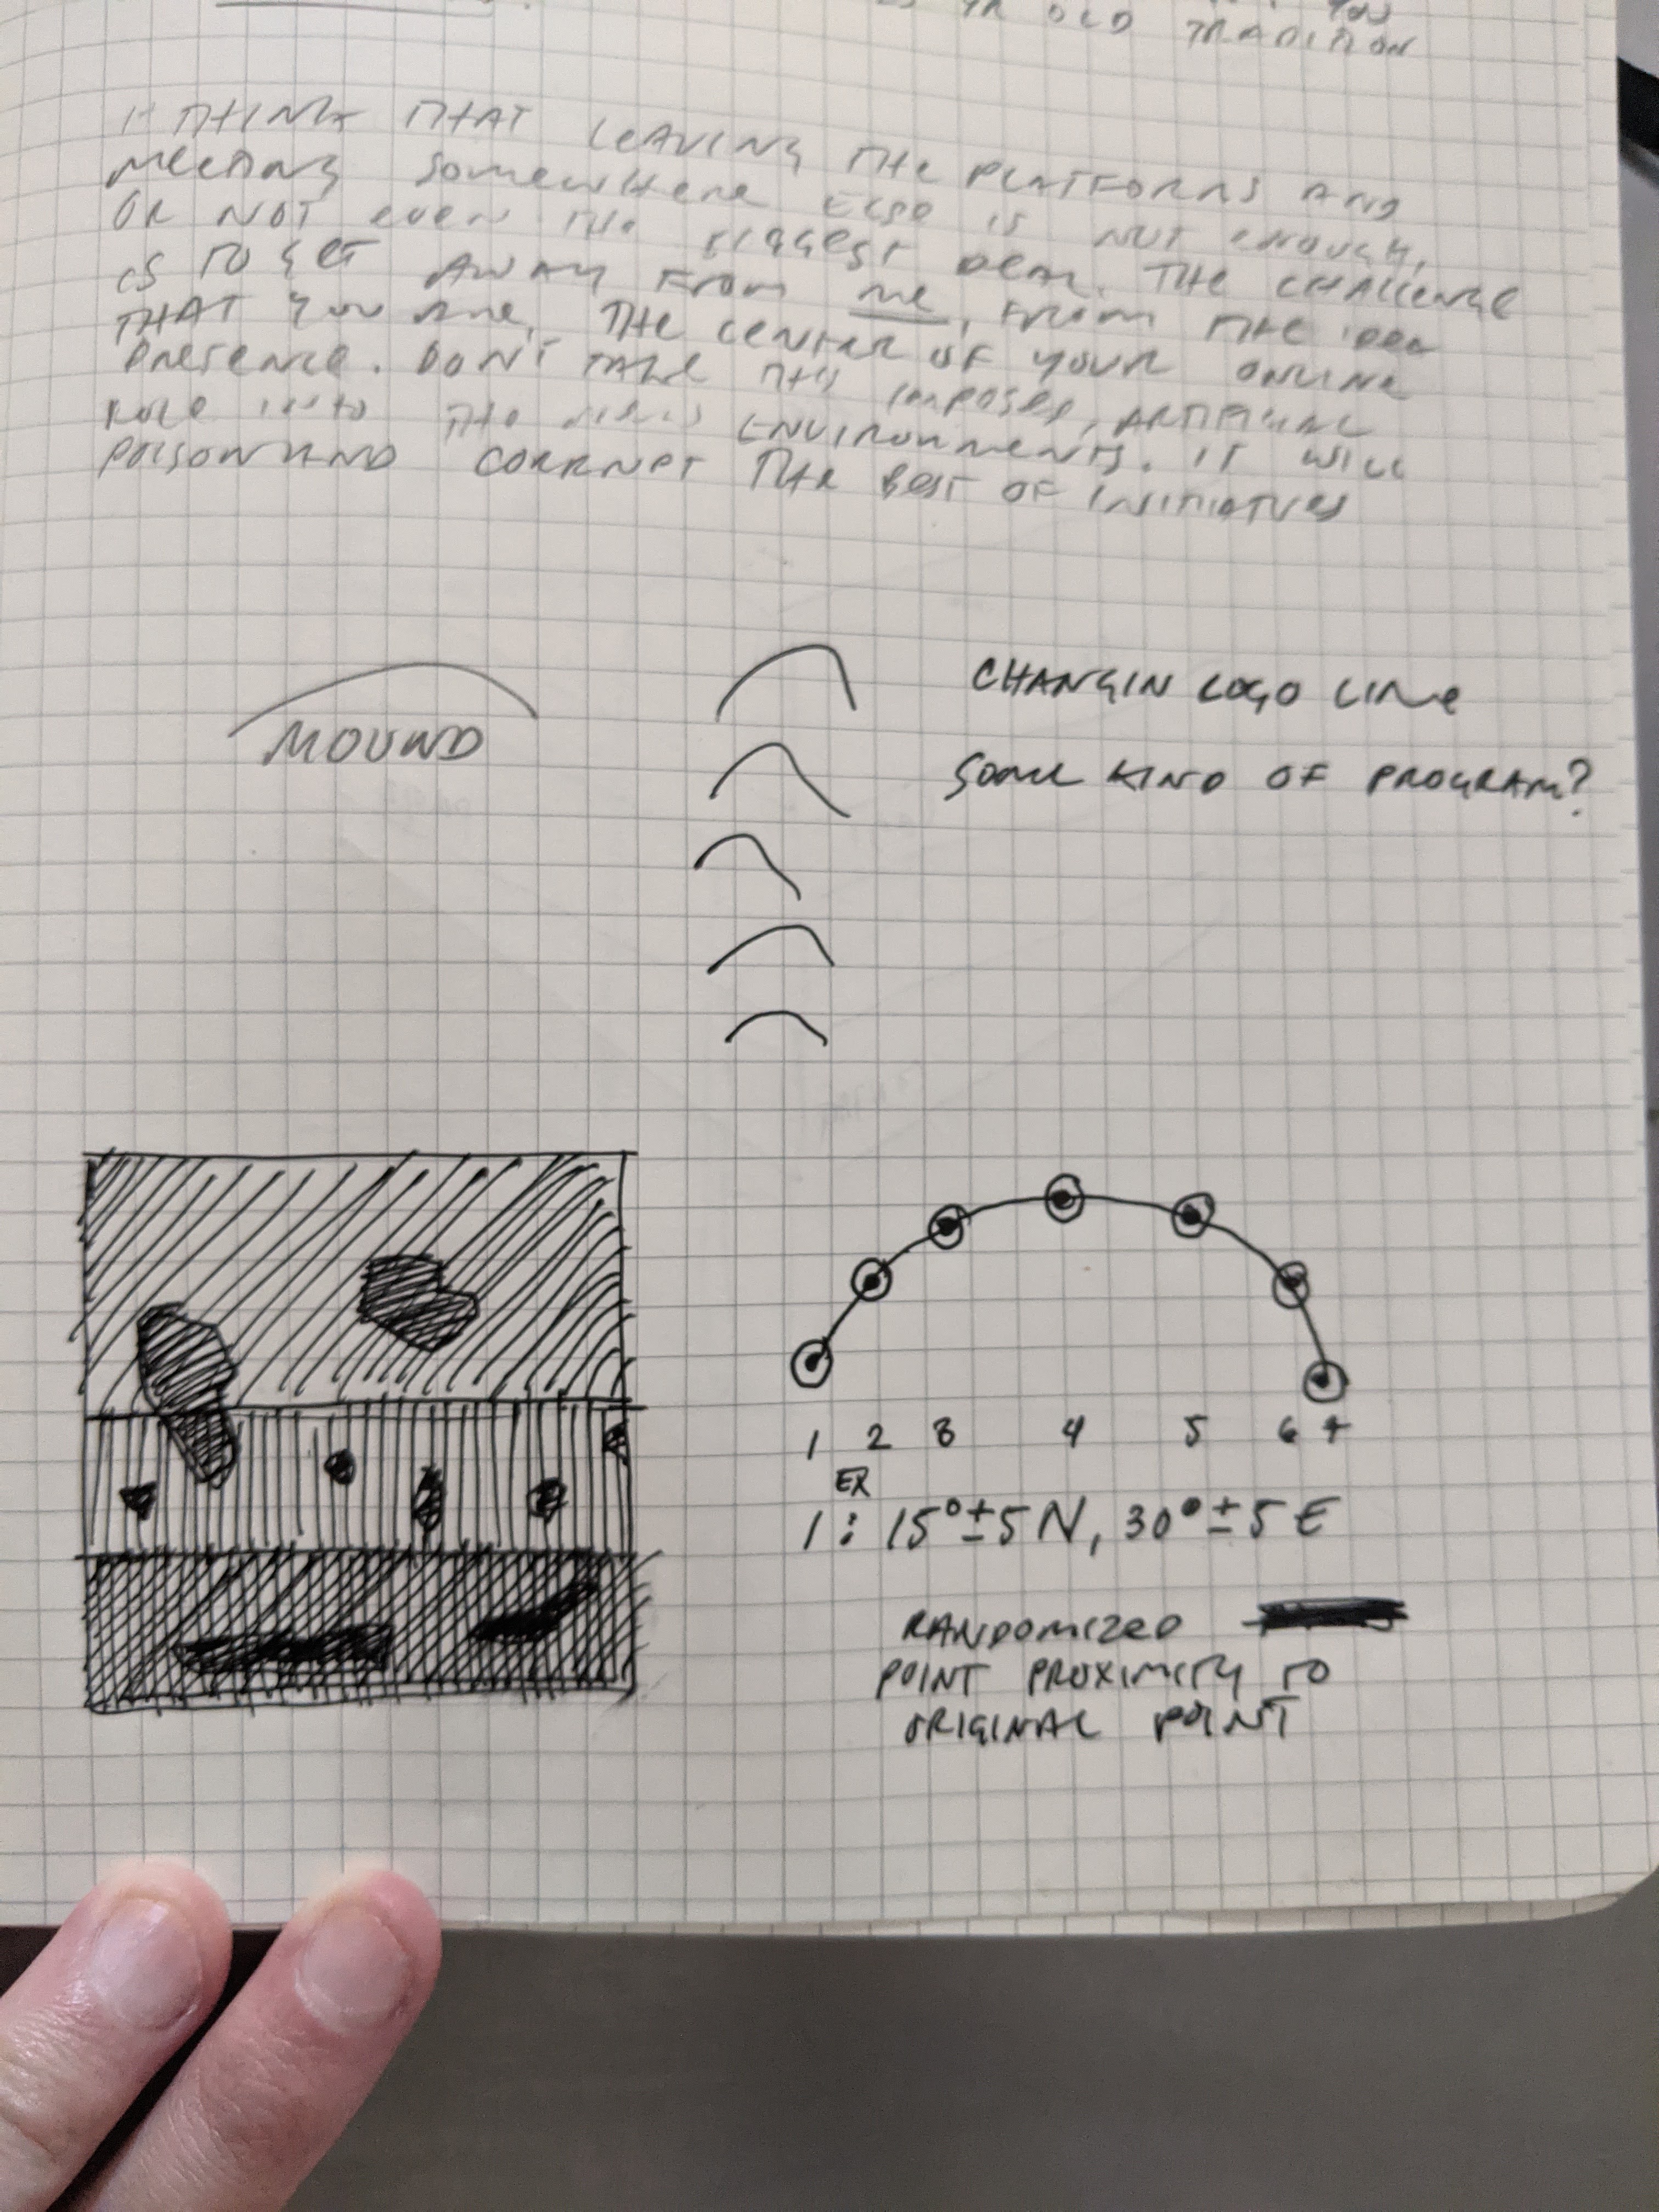 YR OLD TRADITION
I THINK THAT LEAVING THE PLATFORMS AND
MEETING SOMEWHERE ELSE IS NOT ENOUGH,
OR NOT EVEN THE BIGGEST DEAL. THE CHALLENGE
IS TO GET AWAY FROM ME, FROM THE IDEA
THAT YOU ARE THE CENTER OF YOUR ONLINE
PRESENCE. DON'T TAKE THIS IMPOSED, ARTIFICIAL
ROLE INTO THE ENVIRONMENTS. IT WILL
POISON AND CORRUPT THE BEST OF INITIATIVES
MOUND
CHANGIN LOGO LINE
SOME KIND OF PROGRAM?
1 2 3 4 5 6 7
EX
1: 15°±5 N, 30°±5 E
RANDOMIZED
POINT PROXIMITY TO
ORIGINAL POINT